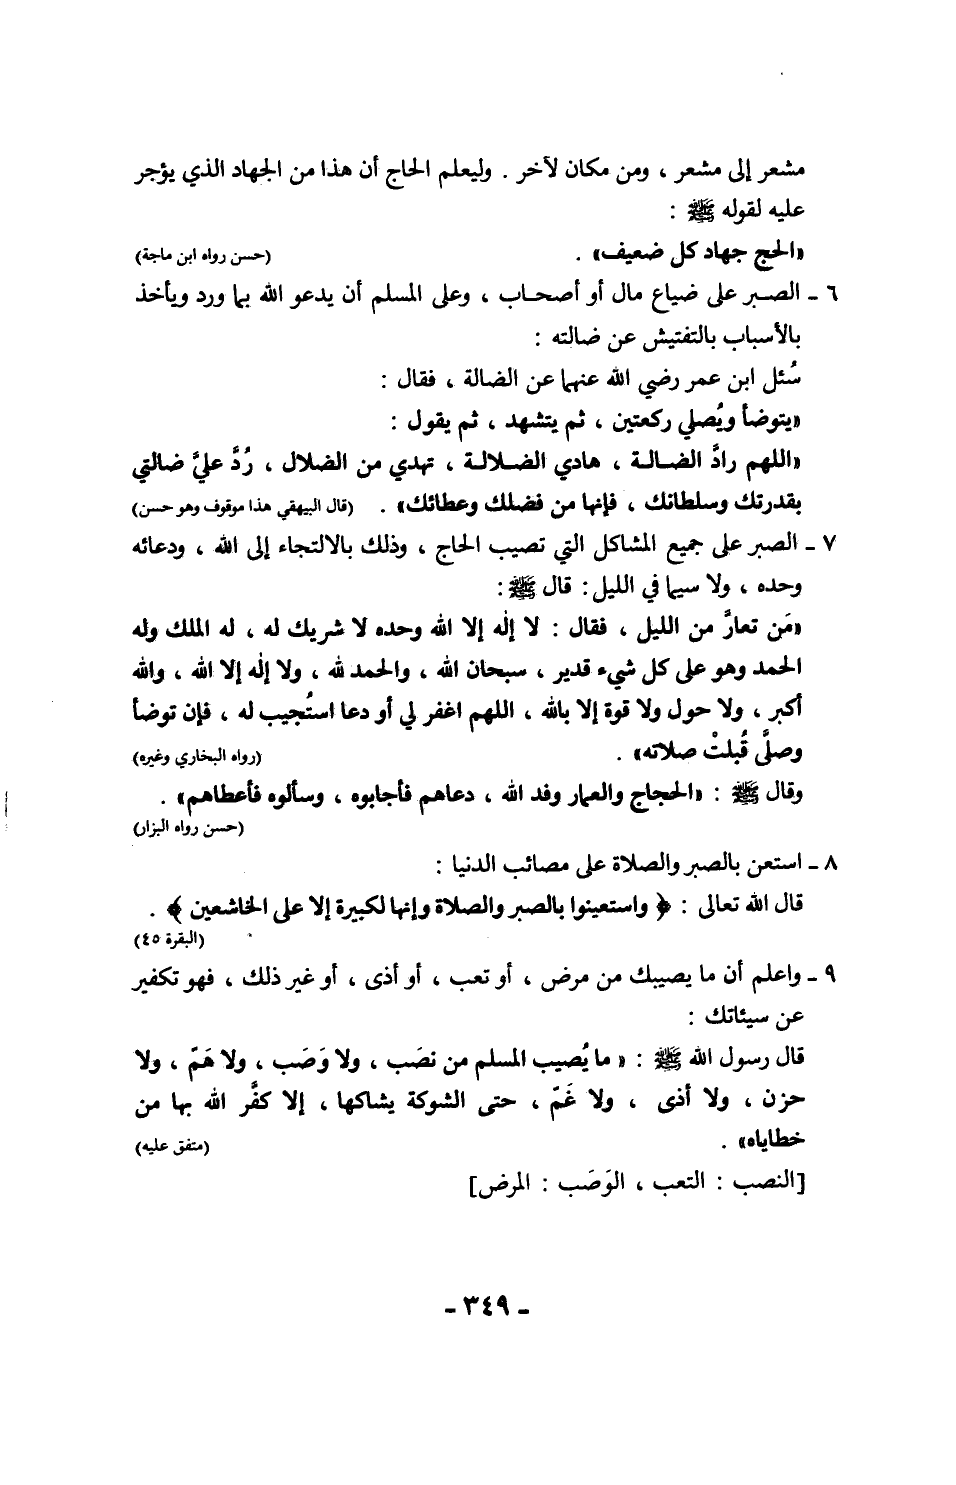 مشعر إلى مشعر ، ومن مكان لآخر . وليعلم الحاج أن هذا من الجهاد الذي يؤجر
عليه لقوله ﷺ :
«الحج جهاد كل ضعيف» . (حسن رواه ابن ماجة)
٦ ـ الصبر على ضياع مال أو أصحاب ، وعلى المسلم أن يدعو الله بما ورد ويأخذ
بالأسباب بالتفتيش عن ضالته :
سُئل ابن عمر رضي الله عنهما عن الضالة ، فقال :
«يتوضأ ويُصلي ركعتين ، ثم يتشهد ، ثم يقول :
«اللهم رادَّ الضالة ، هادي الضلالة ، تهدي من الضلال ، رُدَّ عليَّ ضالتي
بقدرتك وسلطانك ، فإنها من فضلك وعطائك» . (قال البيهقي هذا موقوف وهو حسن)
٧ ـ الصبر على جميع المشاكل التي تصيب الحاج ، وذلك بالالتجاء إلى الله ، ودعائه
وحده ، ولا سيما في الليل : قال ﷺ :
«مَن تعارَّ من الليل ، فقال : لا إله إلا الله وحده لا شريك له ، له الملك وله
الحمد وهو على كل شيء قدير ، سبحان الله ، والحمد لله ، ولا إله إلا الله ، والله
أكبر ، ولا حول ولا قوة إلا بالله ، اللهم اغفر لي أو دعا استُجيب له ، فإن توضأ
وصلَّى قُبلتْ صلاته» . (رواه البخاري وغيره)
وقال ﷺ : «الحجاج والعمار وفد الله ، دعاهم فأجابوه ، وسألوه فأعطاهم» .
(حسن رواه البزار)
٨ ـ استعن بالصبر والصلاة على مصائب الدنيا :
قال الله تعالى : ﴿ واستعينوا بالصبر والصلاة وإنها لكبيرة إلا على الخاشعين ﴾ .
(البقرة ٤٥)
٩ ـ واعلم أن ما يصيبك من مرض ، أو تعب ، أو أذى ، أو غير ذلك ، فهو تكفير
عن سيئاتك :
قال رسول الله ﷺ : « ما يُصيب المسلم من نصَب ، ولا وَصَب ، ولا هَمّ ، ولا
حزن ، ولا أذى ، ولا غَمّ ، حتى الشوكة يشاكها ، إلا كفَّر الله بها من
خطاياه» . (متفق عليه)
[النصب : التعب ، الوَصَب : المرض]
ـ ٣٤٩ ـ